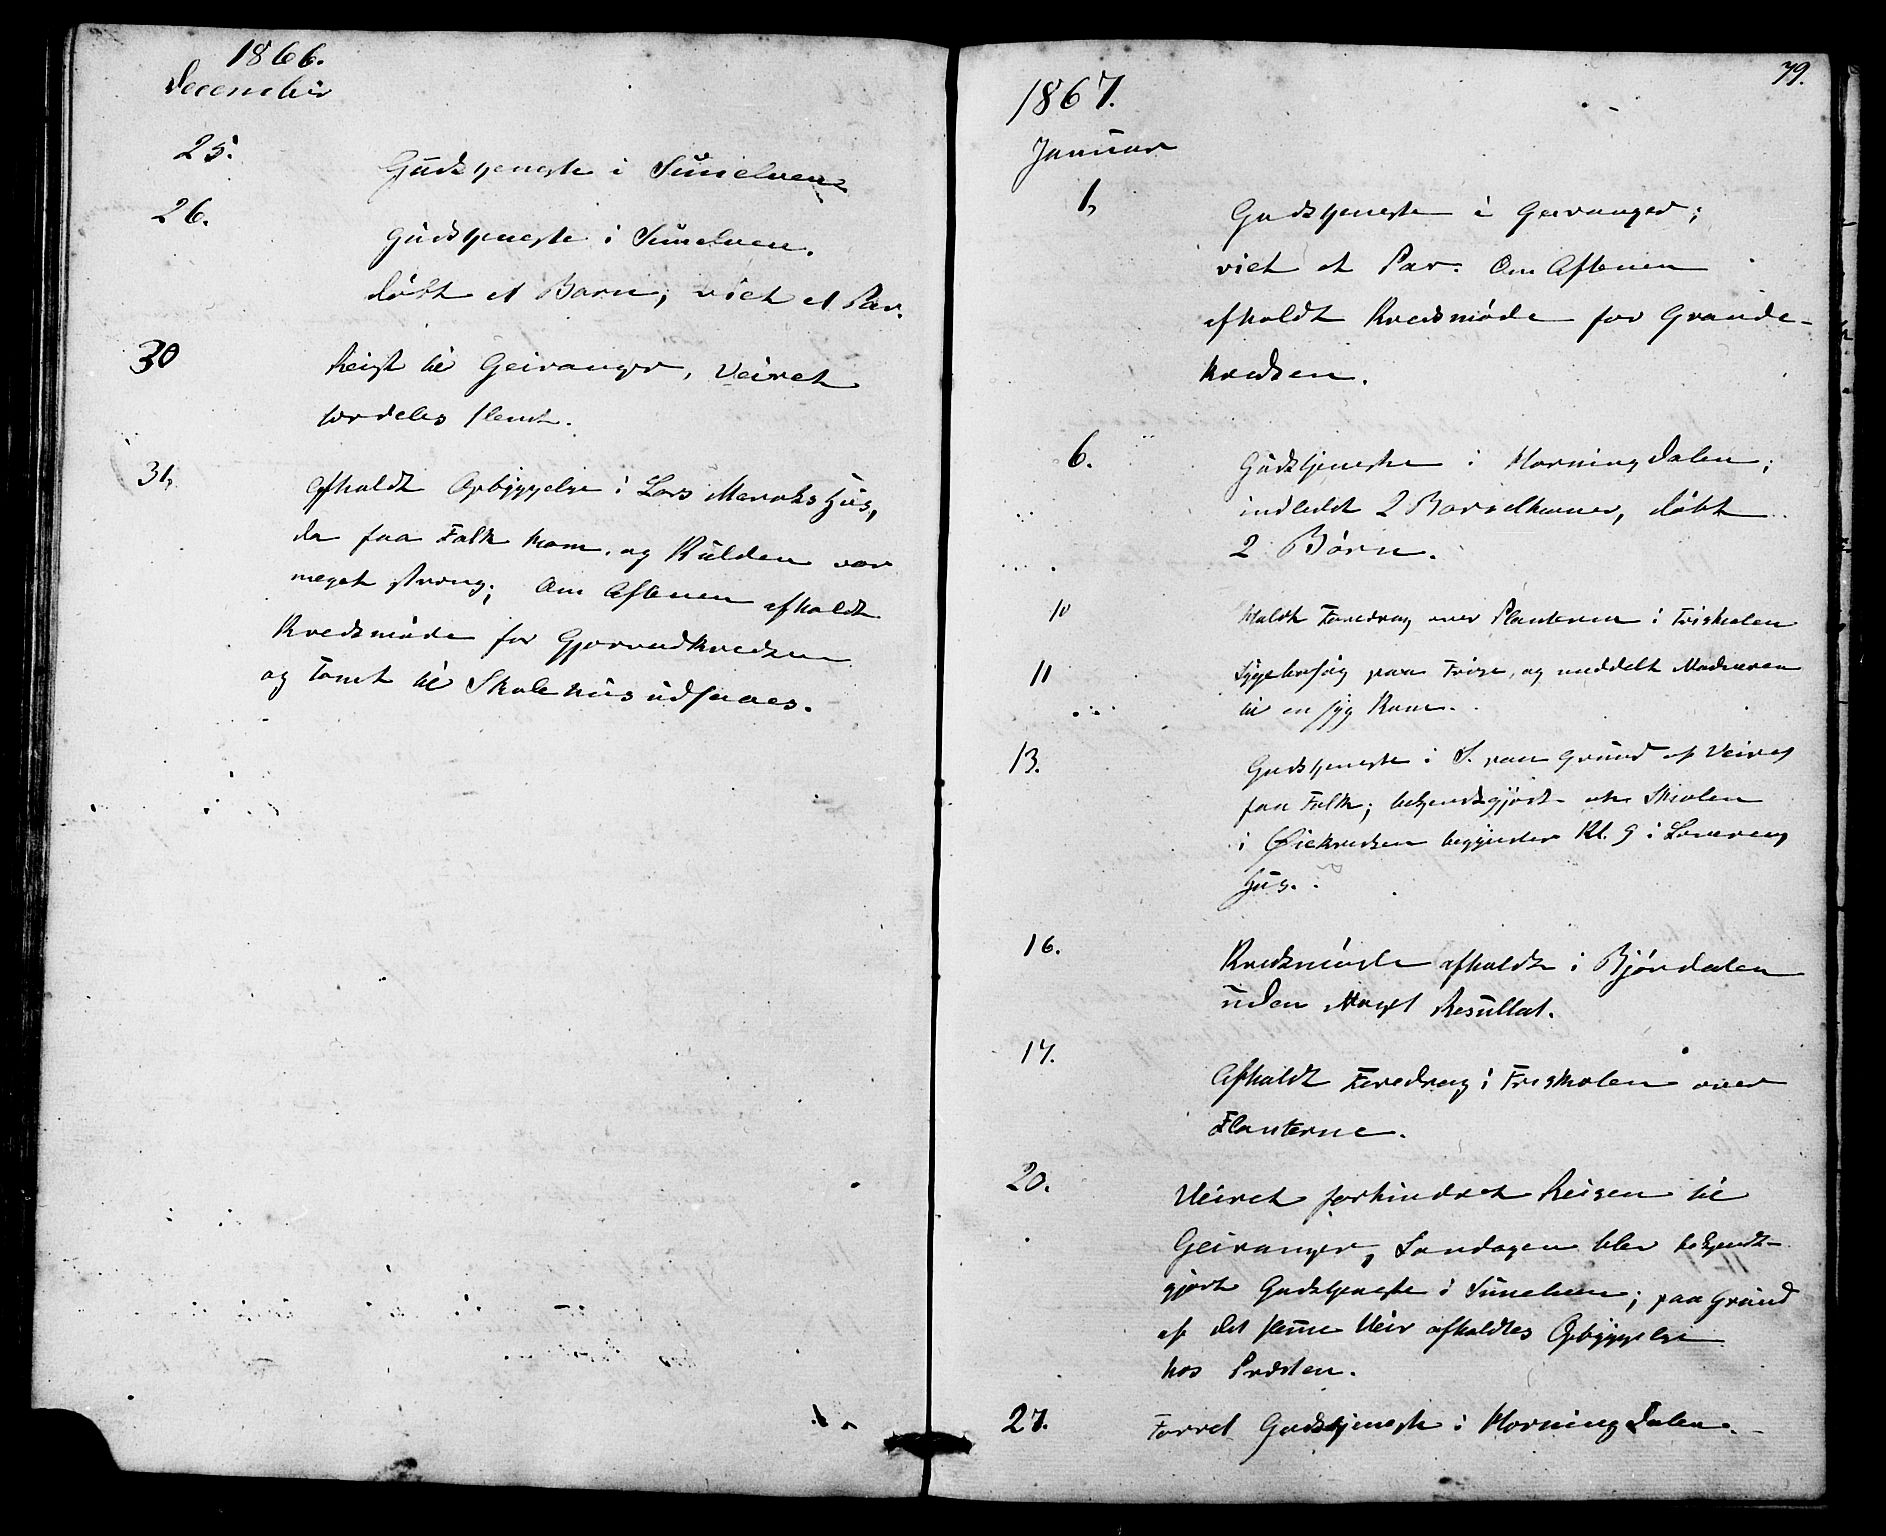 1866.
December
25. Gudstjeneste i Sunelven
26. Gudstjeneste i Sunelven.
døbt et Barn; viet et Par.
30 Reist til Geiranger, Veiret
fordeles slemt.
31, Afholdt Opbyggelse i Lars Meroks Hus,
da faa Folk kom, og Kulden var
meget streng; Om Aftenen afholdt
Kredsmøde for Gjørvadkredsen
og Tomt til Skolehus udsaaes.
79.
1867.
Januar
1, Gudstjeneste i Geiranger;
viet et Par. Om Aftenen
afholdt Kredsmøde for Grande-
kredsen.
6. Gudstjeneste i Horningdalen;
indledet 2 Barselkoner, døbt
2 Børn.
10 Holdt Foredrag over Planterne i Friskolen
11 Sygebesøg paa Frise, og meddelt Nadveren
til en syg Kone.
13. Gudstjeneste i S. paa Grund af Veiret
faa Folk; bekjendtgjort at Skolen
i Øiekredsen begynder Kl. 9 i
Hus.
16. Kredsmøde afholdt i Bjørdalen
uden Noget Resultat.
17. Afholdt Foredrag i Friskolen over
Planterne.
20. Veiret forhindret Reisen til
Geiranger, Søndagen blev bekjendt-
gjort Gudstjeneste i Sunelven; paa Grund
af det slemme Veir afholdtes Opbyggelse
hos Præsten.
27. Forret Gudstjeneste i Horningdalen.